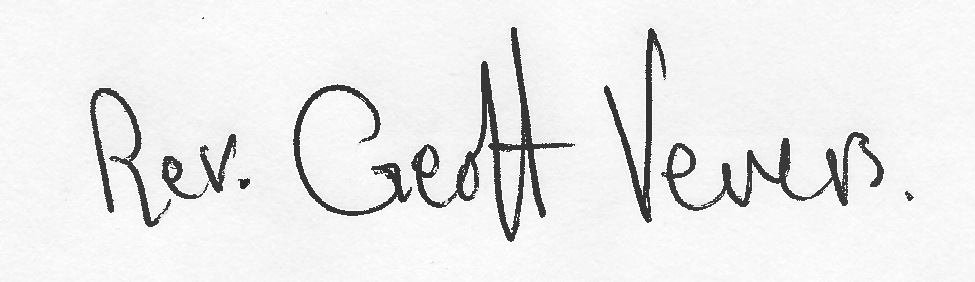 Rev. Geoff Vevers.